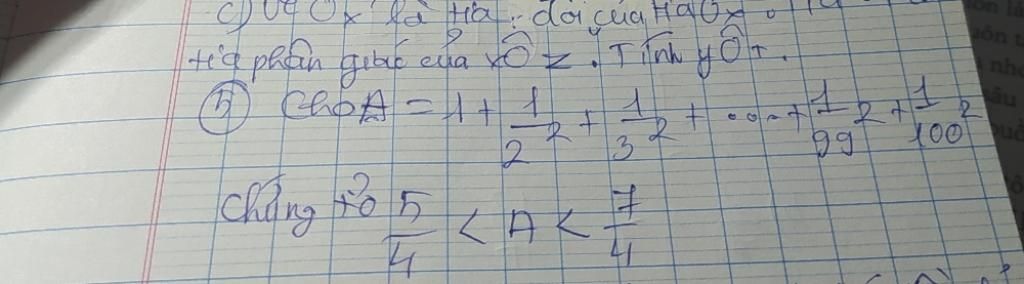 c) Vẽ Ox là tia đối của tia Ox
tia phân giác của yÔz. Tính yÔT.
⑤ Cho A = 1 + 1/2² + 1/3² + .... + 1/99² + 1/100²
Chứng tỏ 5/4 < A < 7/4